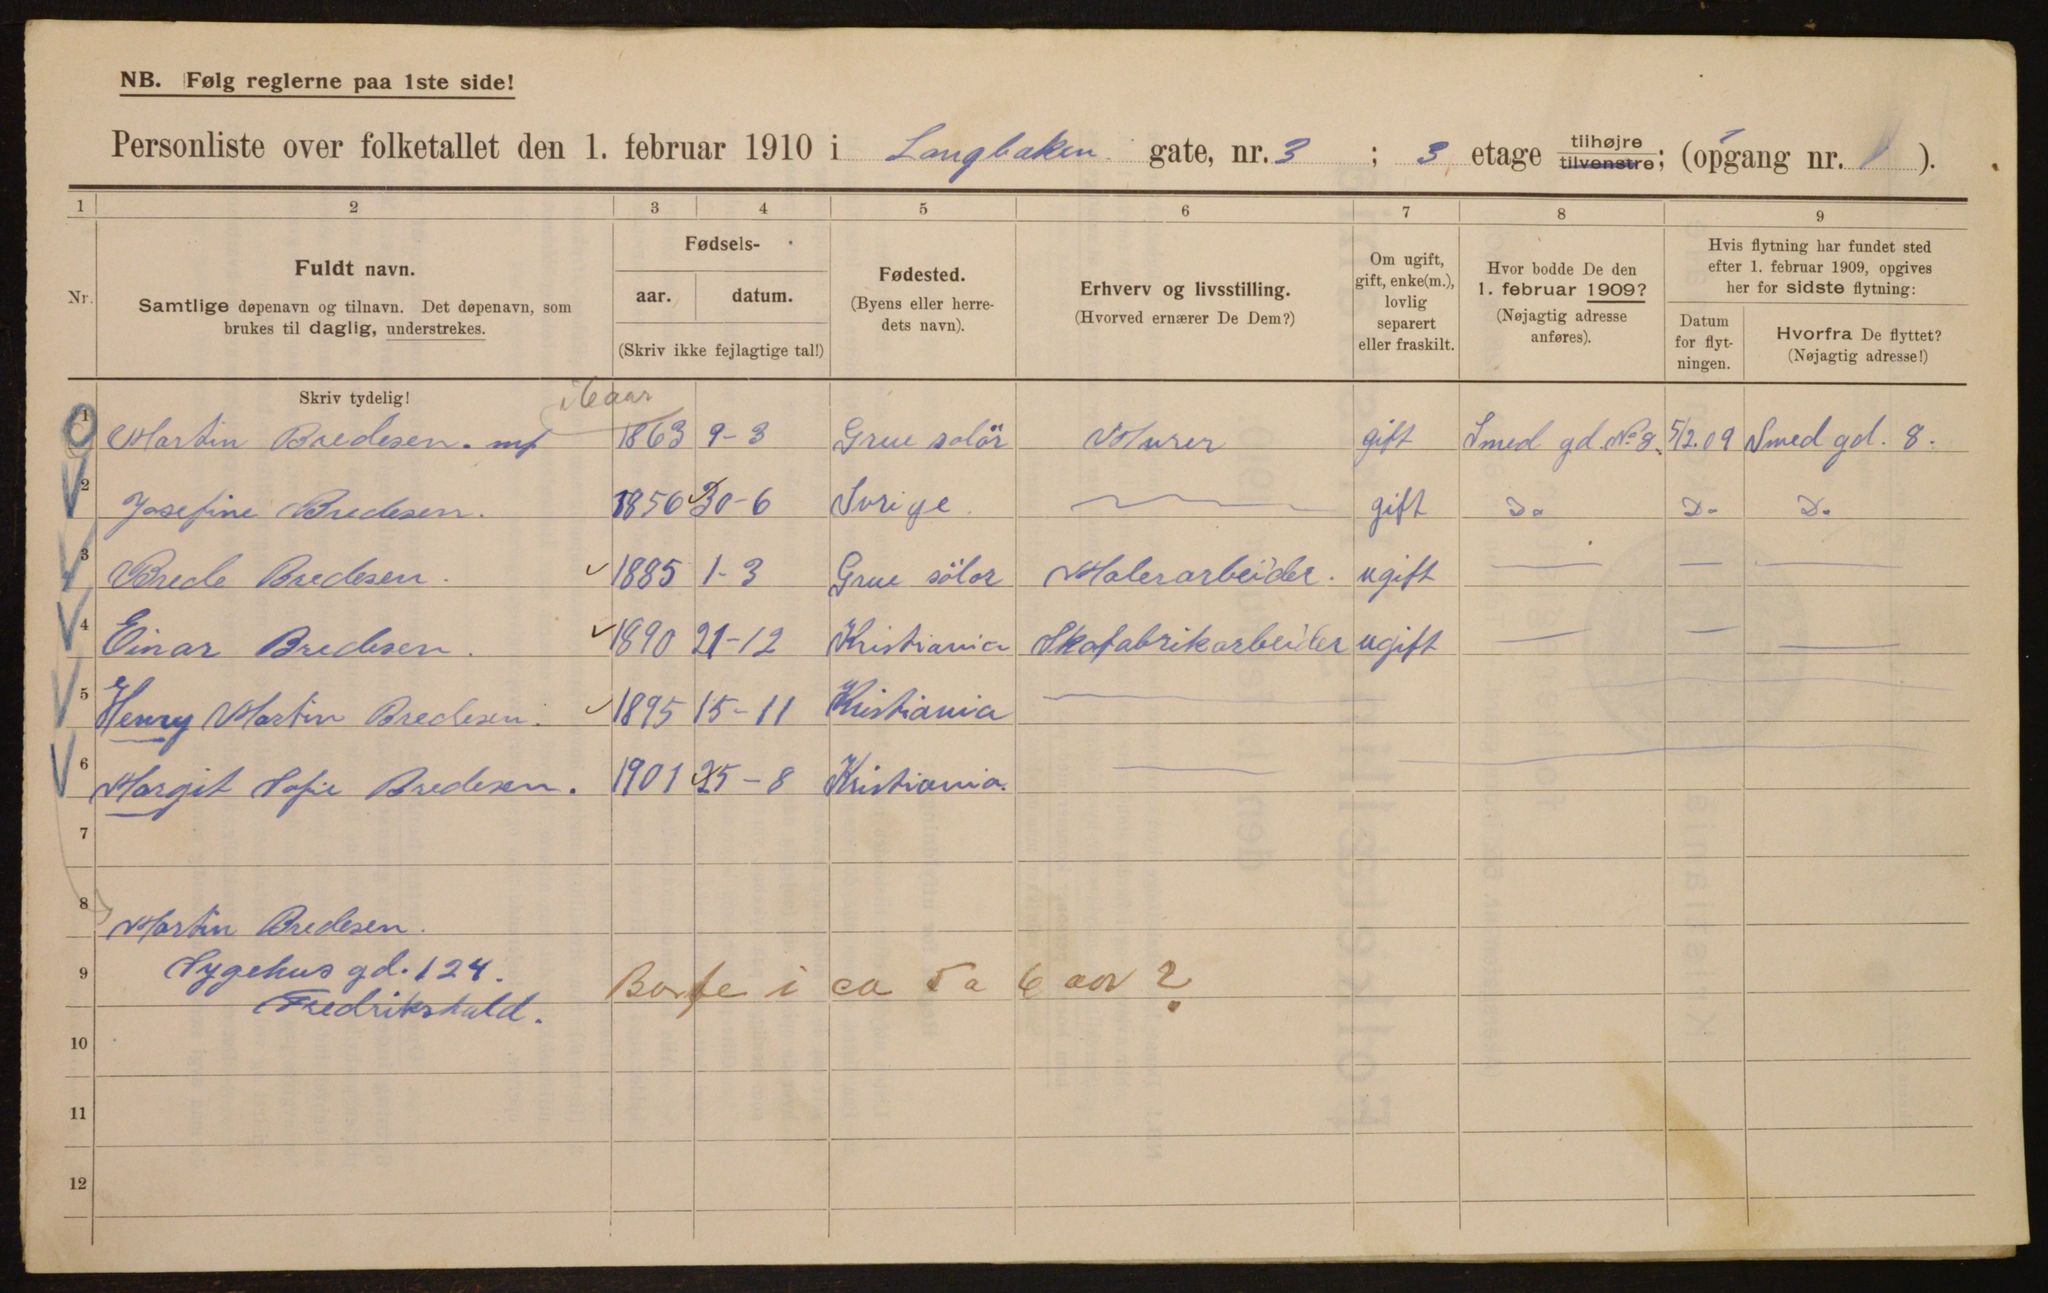 NB. Følg reglerne paa 1ste side!
Personliste over folketallet den 1. februar 1910 i Langbaken gate, nr. 3 ; 3 etage tilhøjre tilvenstre; (opgang nr. 1 ).
1 2 3 4 5 6 7 8 9
Nr.
Fuldt navn.
Samtlige døpenavn og tilnavn. Det døpenavn, som
brukes til daglig, understrekes.
Fødsels-
aar. datum.
(Skriv ikke fejlagtige tal!)
Fødested.
(Byens eller herre-
dets navn).
Erhverv og livsstilling.
(Hvorved ernærer De Dem?)
Om ugift,
gift, enke(m.),
lovlig
separert
eller fraskilt.
Hvor bodde De den
1. februar 1909?
(Nøjagtig adresse
anføres).
Hvis flytning har fundet sted
efter 1. februar 1909, opgives
her for sidste flytning:
Datum
for flyt-
ningen.
Hvorfra De flyttet?
(Nøjagtig adresse!)
Skriv tydelig!
1 Martin Bredesen. 1863 9-3 Grue solör Murer gift Smed gd. No 8. 5/2.09 Smed gd. 8.
2 Josefine Bredesen. 1856 30-6 Svrige. gift Do Do Do
3 Brede Bredesen. 1885 1-3 Grue sölor Malerarbeider. ugift
4 Einar Bredesen. 1890 21-12 Kristiania Skofabrikarbeider ugift
5 Henry Martin Bredesen. 1895 15-11 Kristiania
6 Margit Sofie Bredesen. 1901 25-8 Kristiania.
7
8 Martin Bredesen.
9 Sygehus gd. 124.
Fredrikshald.
Borte i ca 5 a 6 aar?
10
11
12